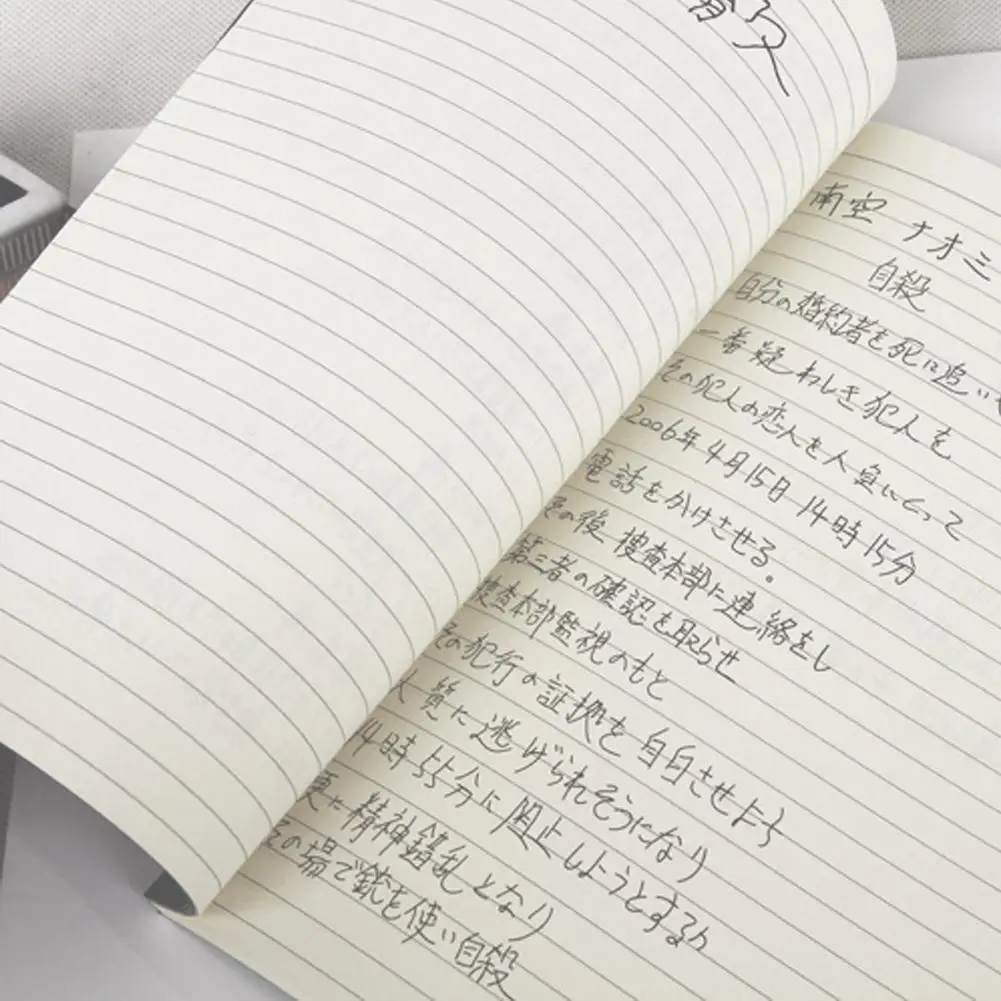 南空 ナオミ
自殺
自分の婚約者を死に追い
一番疑わしき犯人を
その犯人の恋人を人質にとって
2006年4月15日 14時15分
電話をかけさせる。
その後 捜査本部に連絡をし
第三者の確認を取らせ
捜査本部監視のもと
その犯行の証拠を自白させようと
人質に逃げられそうになり
14時55分に阻止しようとするが
更に精神錯乱となり
その場で銃を使い自殺